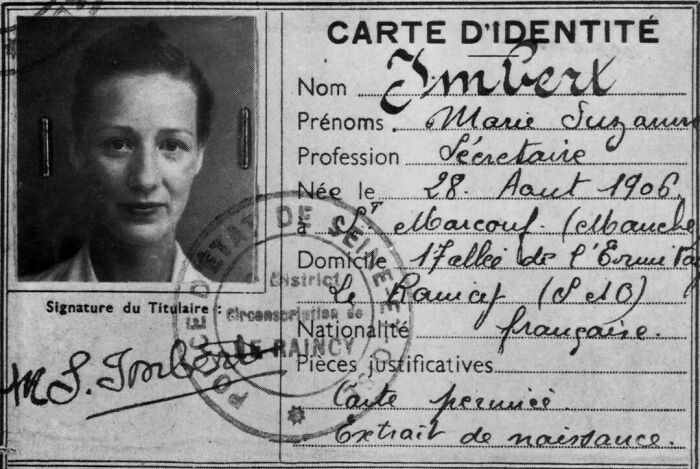 CARTE D'IDENTITÉ
Nom Imbert
Prénoms Marie Suzanne
Profession Sécretaire
Née le 28. Aout 1906
à St Marcouf. (Manche
Domicile 17 allée de l'Ermita
Le Raincy (S & O)
Nationalité française.
Pièces justificatives
Carte
Extrait de naissance.
Signature du Titulaire :
M S. Imbert
ETAT DE SEINE ET O
District
Circonscription de
LE RAINCY